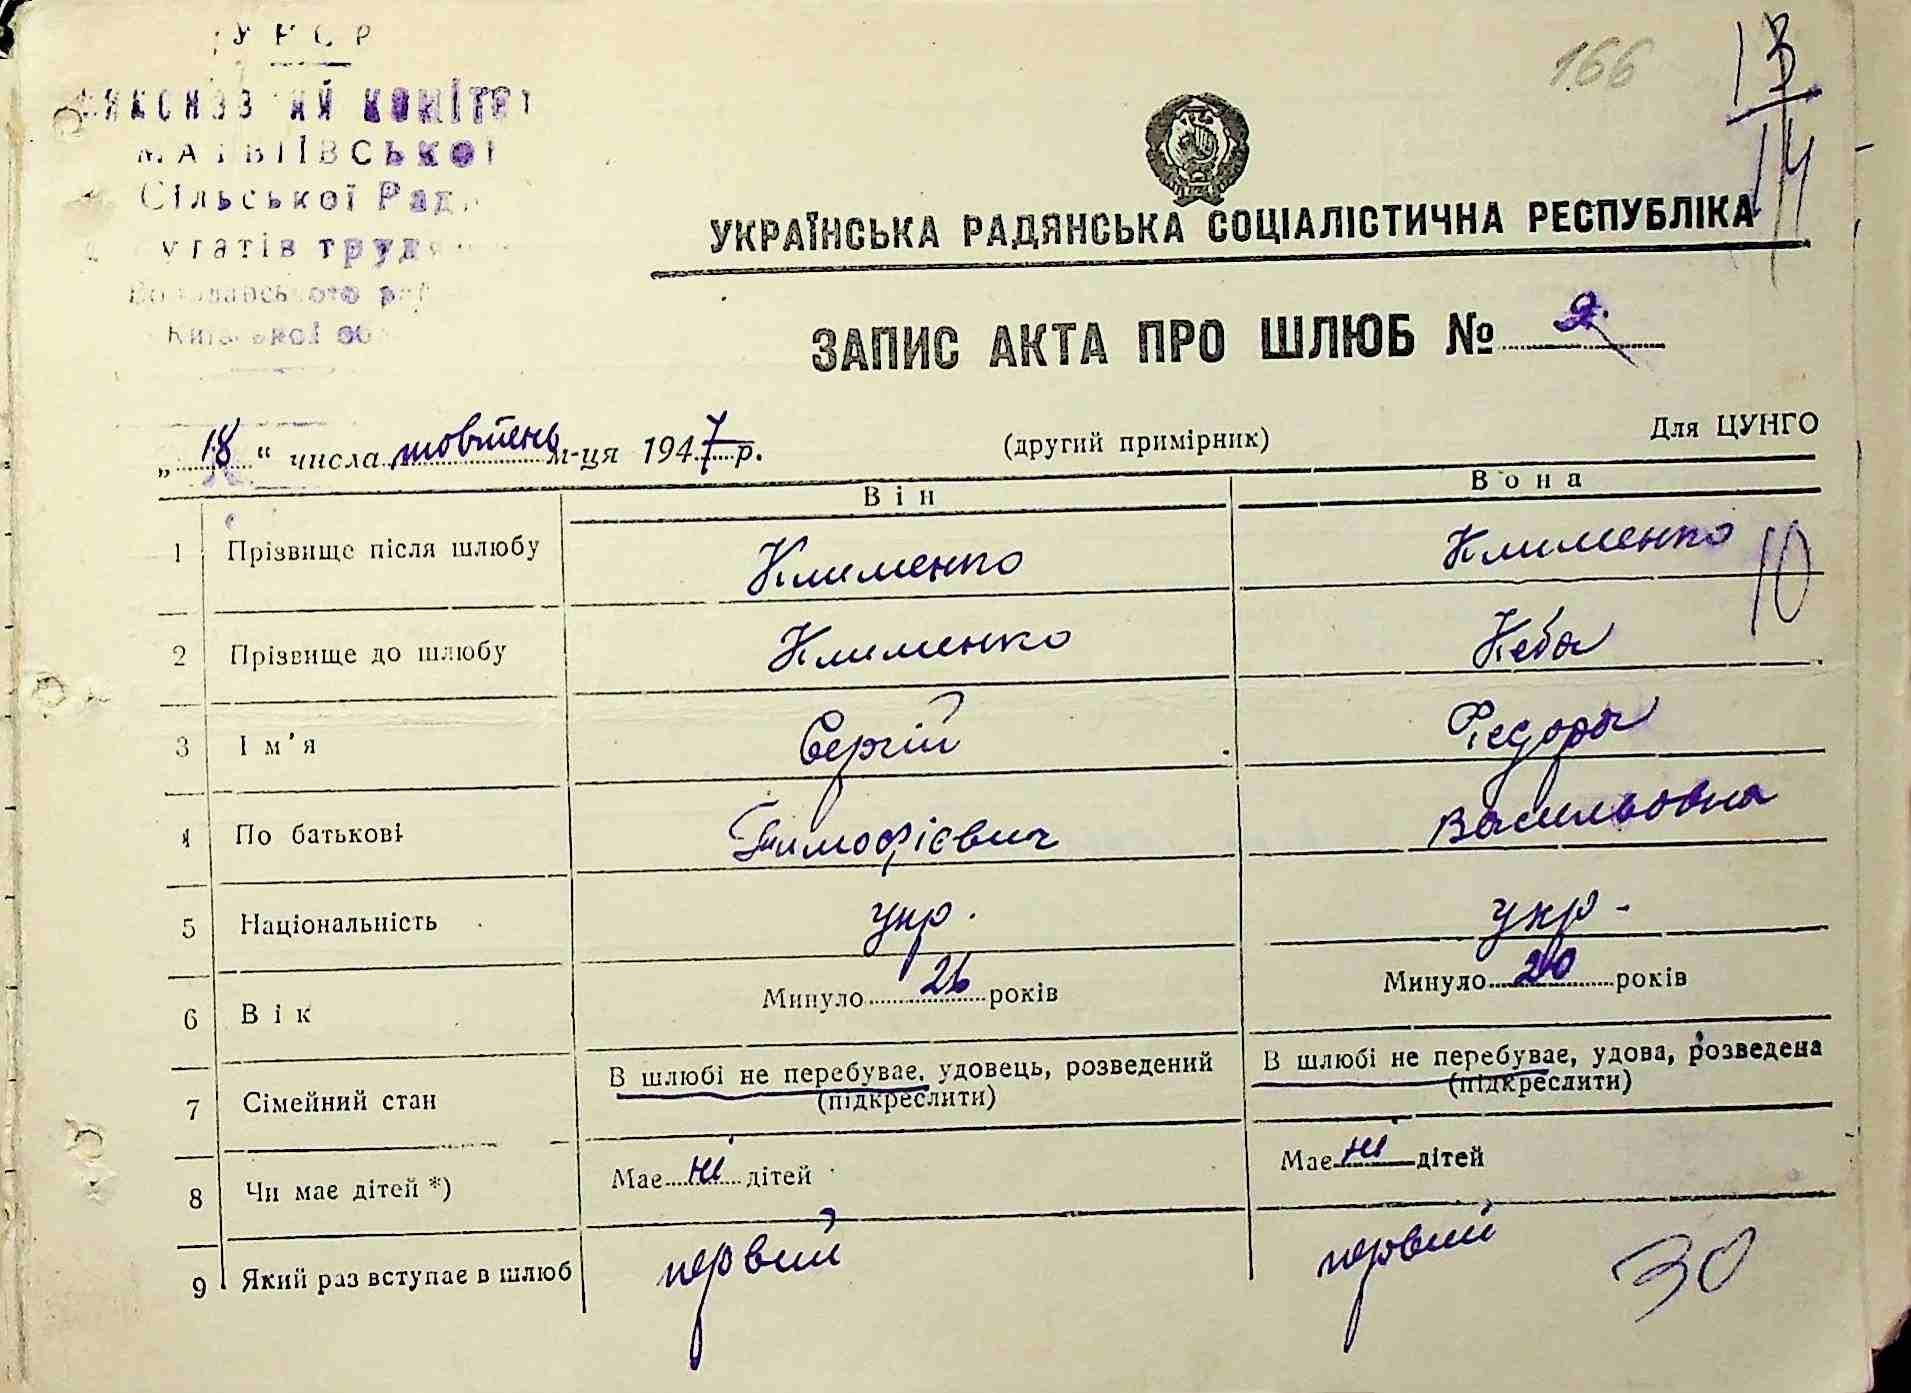 УРСР
КОМІТЕТ
МАТВІЇВСЬКОЇ
Сільської Рад
Київської об
166
13
14
УКРАЇНСЬКА РАДЯНСЬКА СОЦІАЛІСТИЧНА РЕСПУБЛІКА
ЗАПИС АКТА ПРО ШЛЮБ № 9
„18“ числа жовтень м-ця 1947 р. (другий примірник) Для ЦУНГО
Він Вона
1 Прізвище після шлюбу Клименко Клименко
10
2 Прізвище до шлюбу Клименко Кеба
3 Ім’я Сергій Федора
4 По батькові Тимофієвич Васильовна
5 Національність укр. укр.
6 Вік Минуло 26 років Минуло 20 років
7 Сімейний стан В шлюбі не перебуває, удовець, розведений В шлюбі не перебуває, удова, розведена
(підкреслити) (підкреслити)
8 Чи має дітей *) Має ні дітей Має ні дітей
9 Який раз вступає в шлюб первий первий
30